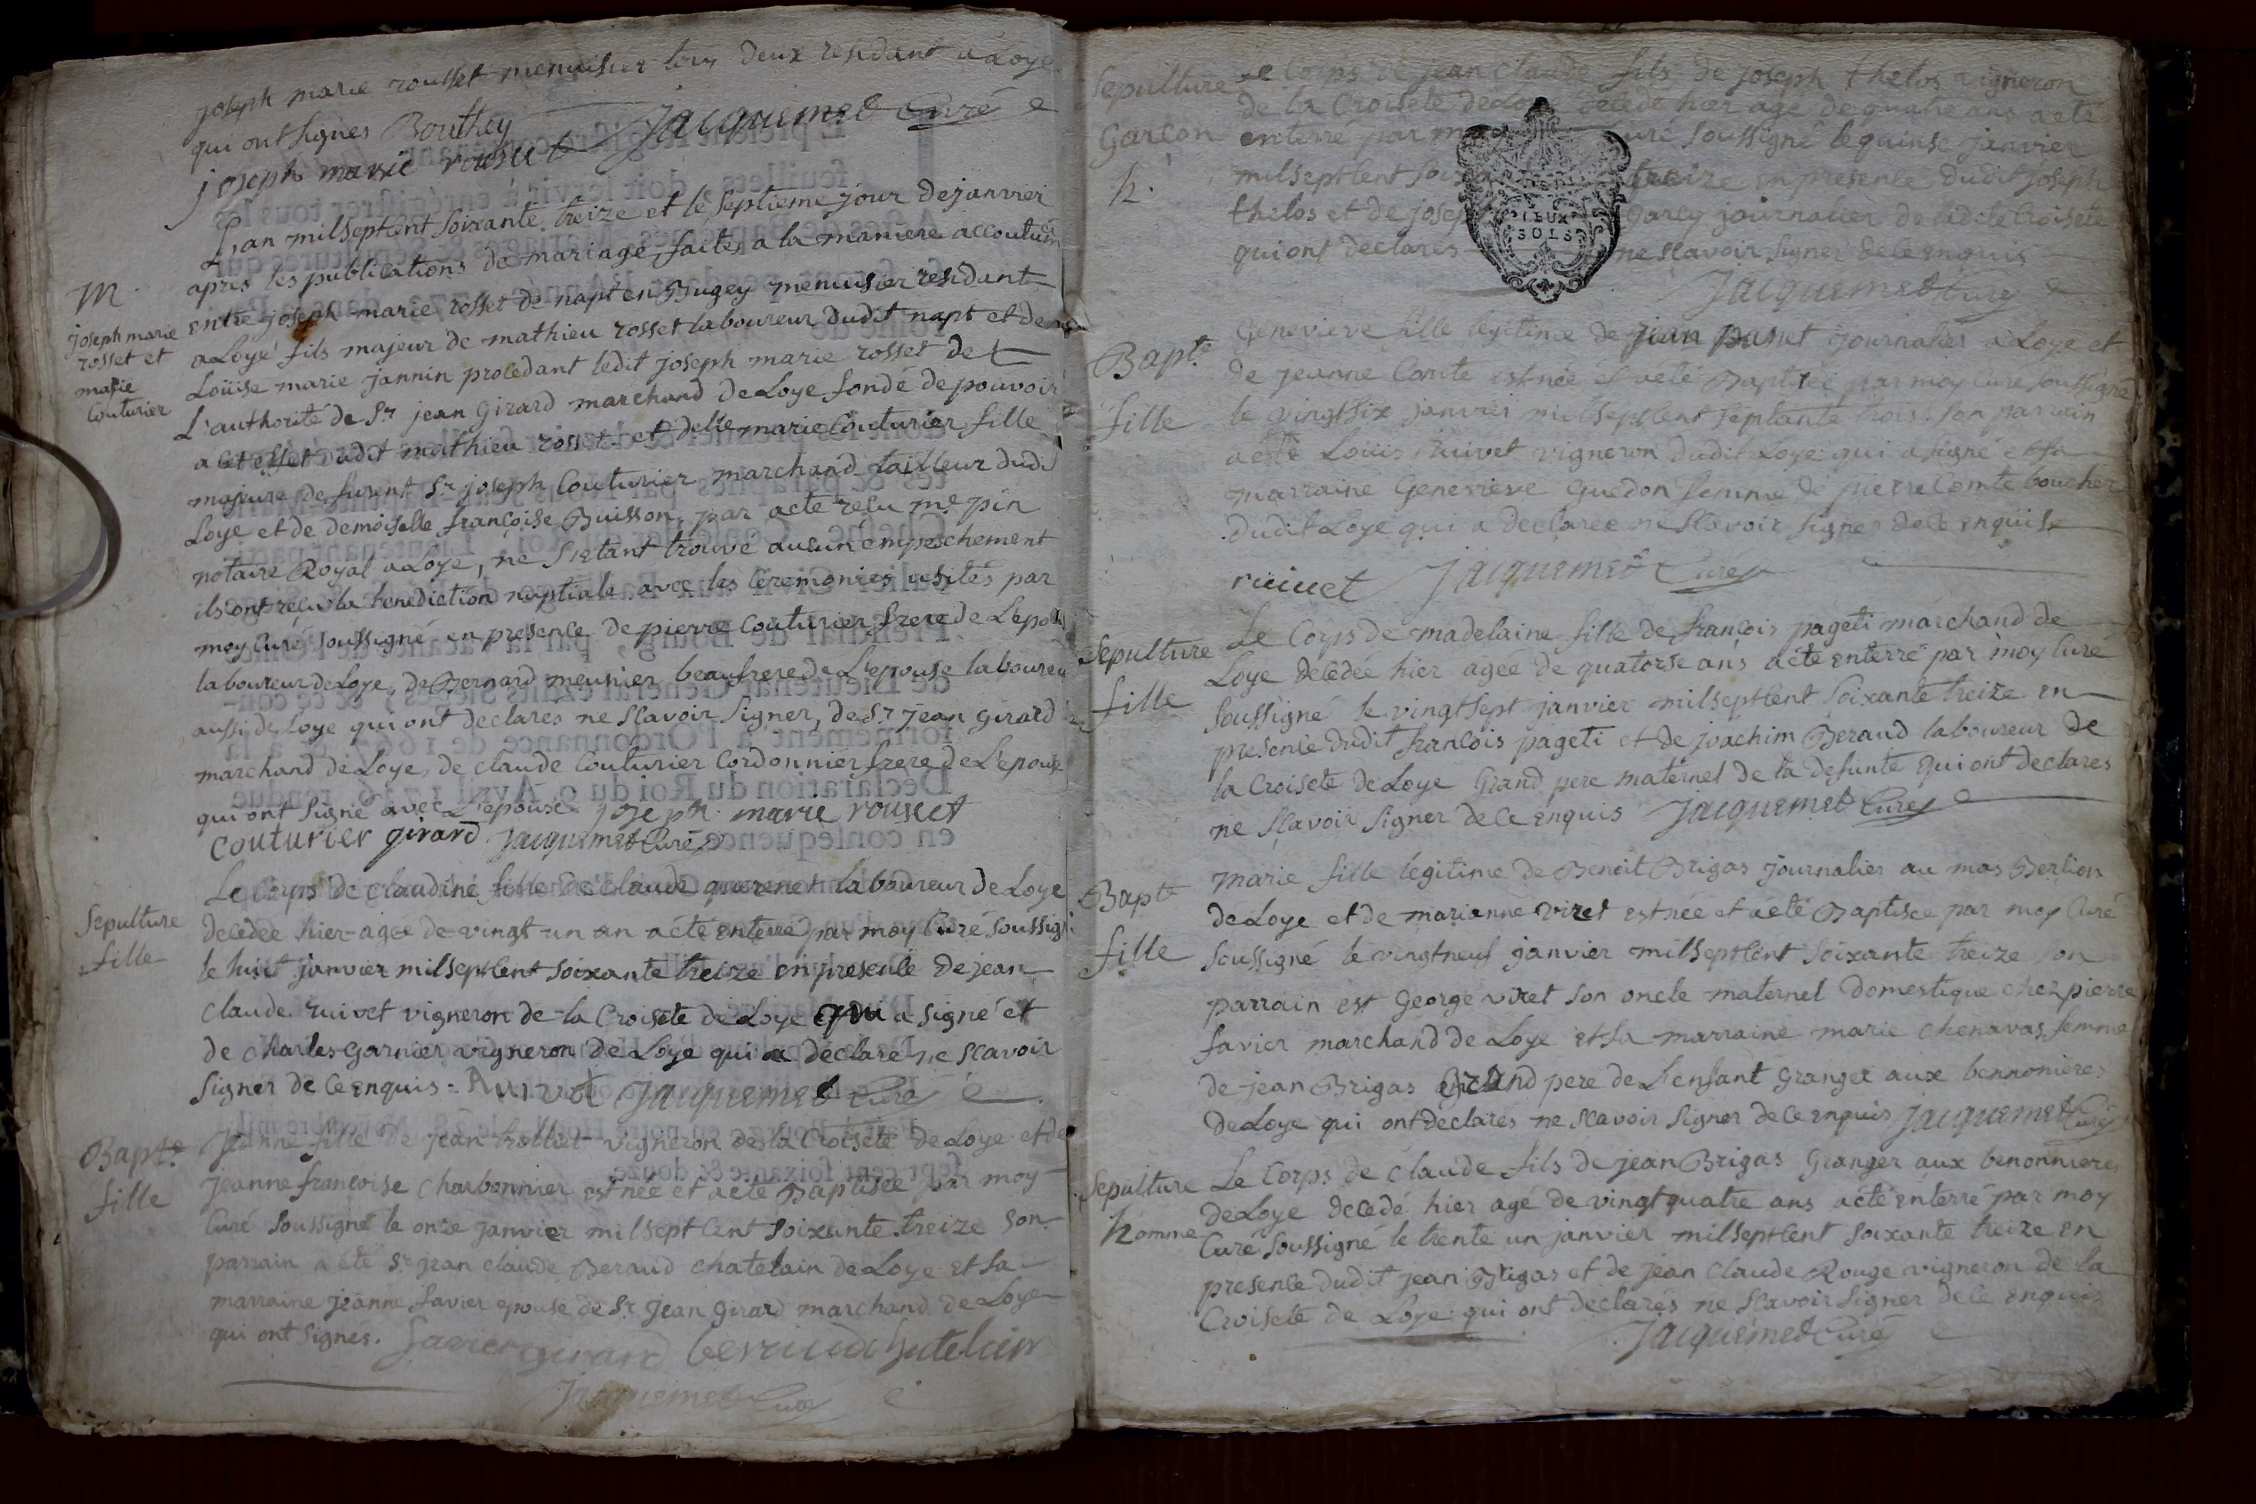 joseph marie rousset menuisier tous deux residant a Loye
qui ont signés Bouthey Jacquemet Curé
joseph marie rousset
L'an milseptcent soixante treize et le septieme jour de janvier
apres les publications de mariage faites a la maniere accoutum
M.
joseph marie
rosset et
marie
Couturier
entre joseph marie rosset de napt en Bugey menuisier residant
a Loye fils majeur de mathieu rosset laboureur dudit napt et de
Loüise marie jannin procedant ledit joseph marie rosset de
L'authorité de Sr jean Girard marchand de Loye fondé de pouvoir
a cet effet dudit mathieu rosset et delle marie Couturier fille
majeure de furent Sr joseph Couturier marchand tailleur dudi
Loye et de demoiselle françoise Buisson, par acte reçu me pin
notaire Royal a Loye, ne s'etant trouvé aucun empeschement
ils ont reçu la benediction nuptiale avec les ceremonies usités par
moy Curé soussigné en presence de pierre Couturier frere de L'epous
laboureur de Loye, de Bernard meunier beaufrere de L'epouse laboureu
aussi de Loye qui ont declares ne sçavoir signer, de Sr jean Girard
marchand de Loye, de claude Couturier Cordonnier frere de L'epouse
qui ont signé avec L'epouse joseph marie rousset
couturier girard Jacquemet Curé
Sepulture
fille
Le Corps de claudine fille de claude querenet laboureur de Loye
decedée hier agée de vingt un an a été enterré par moy Curé soussig
le huit janvier milseptcent soixante treize en presence de jean
claude ruivet vigneron de la Croisete de Loye qui a signé et
de charles Garnier vigneron de Loye qui a declaré ne scavoir
signer de ce enquis Ruivet Jacquemet Curé
Bapte
fille
Jeanne fille de jean trolliet vigneron de la Croisete de Loye et de
jeanne francoise charbonnier est née et a eté Baptisée par moy
Curé soussigné le onze janvier milsept cent soixante treize son
parrain a été Sr jean claude Beraud chatelain de Loye et sa
marraine jeanne favier epouse de Sr jean Girard marchand de Loye
qui ont signés. favier girard beraud chatelain
Jacquemet Curé
Sepulture
Garcon
h.
Le Corps de jean claude fils de joseph thelos vigneron
de la Croisete de Loye decedé hier agé de quatre ans a eté
enterré par moy Curé soussigné le quinse janvier
milseptcent soixante treize en presence dudit joseph
thelos et de joseph Garcy journalier de ladite Croisete
qui ont declarés ne scavoir signer de ce enquis
DEUX
SOLS
Jacquemet Curé
Bapte
fille
Genevieve fille legitime de jean panet journalier a Loye et
de jeanne Comte est née et a eté Baptisée par moy cure soussigné
le vingtsix janvier milseptcent septante trois son parrain
a eté Loüis Ruivet vigneron dudit Loye qui a signé et sa
marraine Genevieve Guedon femme de pierre Comte boucher
dudit Loye qui a declarée ne sçavoir signer de ce enquise
ruivet Jacquemet Curé
Sepulture
fille
Le Corps de madelaine fille de françois pageti marchand de
Loye decedée hier agée de quatorse ans a eté enterré par moy Cure
soussigné le vingtsept janvier milseptcent soixante treize en
presence dudit francois pageti et de joachim Beraud laboureur de
la Croisete de Loye Grand pere maternel de la defunte qui ont declares
ne sçavoir signer de ce enquis Jacquemet Curé
Bapte
fille
Marie fille legitime de Benoit Brigas journalier au mas Berlion
de Loye et de marianne viret est née et a eté Baptisée par moy Curé
soussigné le vingtneuf janvier milseptcent soixante treize son
parrain est George viret son oncle maternel domestique chez pierre
favier marchand de Loye et sa marraine marie chenavas femme
de jean Brigas Grand pere de L'enfant Granger aux bennonieres
de Loye qui ont declarés ne scavoir signer de ce enquis Jacquemet Curé
Sepulture
homme
Le Corps de claude fils de jean Brigas Granger aux benonnieres
de Loye decedé hier agé de vingt quatre ans a eté enterré par moy
Curé soussigné le trente un janvier milseptcent soixante treize en
presence dudit jean Brigas et de jean claude Rouge vigneron de la
Croisete de Loye qui ont declarés ne sçavoir signer de ce enquis
Jacquemet Curé